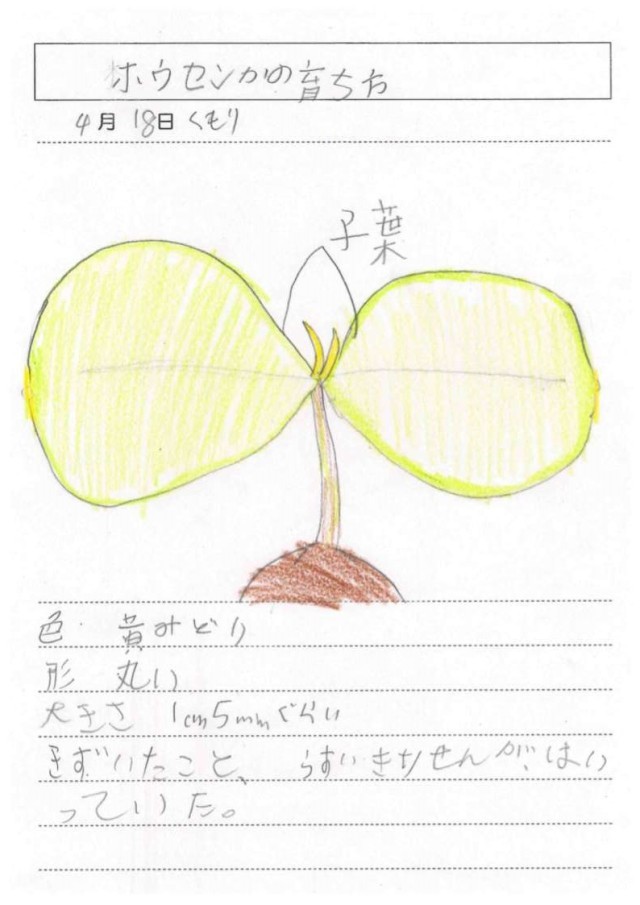 ホウセンカの育ち方
4月18日くもり
子葉
色 黄みどり
形 丸い
大きさ 1cm5mmぐらい
きずいたこと、 うすいきりせんが、はい
っていた。